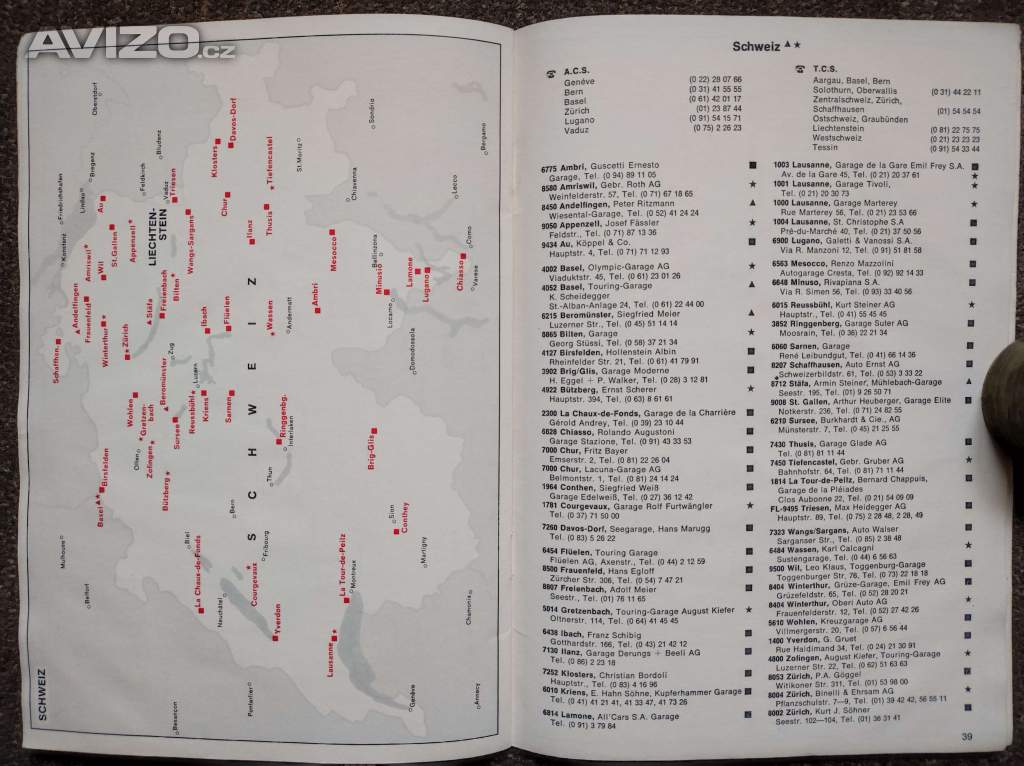 AVIZO.cz
SCHWEIZ
SCHWEIZ
LIECHTEN-
STEIN
Oberstdorf
Bregenz
Lindau
Friedrichshafen
Konstanz
Feldkirch
Bludenz
Vaduz
Triesen
Au
St.Gallen
Appenzell
Amriswil
Wil
Andelfingen
Frauenfeld
Schaffhsn.
Winterthur
Zürich
Stäfa
Freienbach
Bilten
Wangs-Sargans
Klosters
Davos-Dorf
Chur
Ilanz
Thusis
Tiefencastel
St.Moritz
Sondrio
Chiavenna
Bergamo
Lecco
Como
Varese
Chiasso
Lugano
Lamone
Bellinzona
Minusio
Locarno
Mesocco
Ambri
Domodossola
Andermatt
Wassen
Flüelen
Ibach
Zug
Luzern
Kriens
Reussbühl
Beromünster
Sursee
Sarnen
Wohlen
Gretzen-
bach
Olten
Zofingen
Bützberg
Birsfelden
Basel
Ringgenbg.
Interlaken
Thun
Bern
Brig-Glis
Sion
Conthey
Martigny
Chamonix
Mulhouse
Belfort
Biel
La Chaux-de-Fonds
Neuchâtel
Fribourg
Courgevaux
Yverdon
La Tour-de-Peilz
Montreux
Lausanne
Besançon
Pontarlier
Genève
Annecy
Schweiz
A.C.S.
Genève (0 22) 28 07 66
Bern (0 31) 41 55 55
Basel (0 61) 42 01 17
Zürich (01) 23 87 44
Lugano (0 91) 54 15 71
Vaduz (0 75) 2 26 23
T.C.S.
Aargau, Basel, Bern
Solothurn, Oberwallis (0 31) 44 22 11
Zentralschweiz, Zürich,
Schaffhausen (01) 54 54 54
Ostschweiz, Graubünden
Liechtenstein (0 81) 22 75 75
Westschweiz (0 21) 23 23 23
Tessin (0 91) 54 33 44
6775 Ambri, Guscetti Ernesto
Garage, Tel. (0 94) 89 11 05
8580 Amriswil, Gebr. Roth AG
Weinfelderstr. 57, Tel. (0 71) 67 18 65
8450 Andelfingen, Peter Ritzmann
Wiesental-Garage, Tel. (0 52) 41 24 24
9050 Appenzell, Josef Fässler
Feldstr., Tel. (0 71) 87 13 36
9434 Au, Köppel & Co.
Hauptstr. 4, Tel. (0 71) 71 12 93
4002 Basel, Olympic-Garage AG
Viaduktstr. 45, Tel. (0 61) 23 01 26
4052 Basel, Touring-Garage
K. Scheidegger
St.-Alban-Anlage 24, Tel. (0 61) 22 44 00
6215 Beromünster, Siegfried Meier
Luzerner Str., Tel. (0 45) 51 14 14
8865 Bilten, Garage
Georg Stüssi, Tel. (0 58) 37 21 34
4127 Birsfelden, Hollenstein Albin
Rheinfelder Str. 21, Tel. (0 61) 41 79 91
3902 Brig/Glis, Garage Moderne
H. Eggel + P. Walker, Tel. (0 28) 3 12 81
4922 Bützberg, Ernst Scherer
Hauptstr. 394, Tel. (0 63) 8 61 61
2300 La Chaux-de-Fonds, Garage de la Charrière
Gérold Andrey, Tel. (0 39) 23 10 44
6828 Chiasso, Rolando Augustoni
Garage Stazione, Tel. (0 91) 43 33 53
7000 Chur, Fritz Bayer
Emserstr. 2, Tel. (0 81) 22 26 04
7000 Chur, Lacuna-Garage AG
Belmontstr. 1, Tel. (0 81) 24 14 24
1964 Conthen, Siegfried Weiß
Garage Edelweiß, Tel. (0 27) 36 12 42
1781 Courgevaux, Garage Rolf Furtwängler
Tel. (0 37) 71 50 00
7260 Davos-Dorf, Seegarage, Hans Marugg
Tel. (0 83) 5 26 22
6454 Flüelen, Touring Garage
Flüelen AG, Axenstr., Tel. (0 44) 2 12 59
8500 Frauenfeld, Hans Egloff
Zürcher Str. 306, Tel. (0 54) 7 47 21
8807 Freienbach, Adolf Meier
Seestr., Tel. (01) 76 11 65
5014 Gretzenbach, Touring-Garage August Kiefer
Oltnerstr. 114, Tel. (0 64) 41 45 45
6438 Ibach, Franz Schibig
Gotthardstr. 166, Tel. (0 43) 21 42 12
7130 Ilanz, Garage Derungs + Beeli AG
Tel. (0 86) 2 23 18
7252 Klosters, Christian Bordoli
Hauptstr., Tel. (0 83) 4 16 96
6010 Kriens, E. Hahn Söhne, Kupferhammer Garage
Tel. (0 41) 41 21 41, 41 33 47, 41 73 26
6814 Lamone, All'Cars S.A. Garage
Tel. (0 91) 3 79 84
1003 Lausanne, Garage de la Gare Emil Frey S.A.
Av. de la Gare 45, Tel. (0 21) 20 37 61
1001 Lausanne, Garage Tivoli,
Tel. (0 21) 20 30 73
1000 Lausanne, Garage Marterey
Rue Marterey 56, Tel. (0 21) 23 53 66
1004 Lausanne, St. Christophe S.A
Pré-du-Marché 40, Tel. (0 21) 37 50 56
6900 Lugano, Galetti & Vanossi S.A.
Via R. Manzoni 12, Tel. (0 91) 51 81 58
6563 Mesocco, Renzo Mazzolini
Autogarage Cresta, Tel. (0 92) 92 14 33
6648 Minuso, Rivapiana S.A.
Via R. Simen 56, Tel. (0 93) 33 40 56
6015 Reussbühl, Kurt Steiner AG
Hauptstr., Tel. (0 41) 55 45 45
3852 Ringgenberg, Garage Suter AG
Moosrain, Tel. (0 36) 22 21 34
6060 Sarnen, Garage
René Leibundgut, Tel. (0 41) 66 14 36
8207 Schaffhausen, Auto Ernst AG
Schweizerbildstr. 61, Tel. (0 53) 3 33 22
8712 Stäfa, Armin Steiner, Mühlebach-Garage
Seestr. 195, Tel. (01) 9 26 50 71
9008 St. Gallen, Arthur Heuberger, Garage Elite
Notkerstr. 236, Tel. (0 71) 24 82 55
6210 Sursee, Burkhardt & Cie., AG
Münsterstr. 7, Tel. (0 45) 21 25 55
7430 Thusis, Garage Glade AG
Tel. (0 81) 81 11 44
7450 Tiefencastel, Gebr. Gruber AG
Bahnhofstr. 64, Tel. (0 81) 71 11 44
1814 La Tour-de-Pellz, Bernard Chappuis,
Garage de la Pléiades
Clos Aubonne 22, Tel. (0 21) 54 09 09
FL-9495 Triesen, Max Heidegger AG
Hauptstr. 89, Tel. (0 75) 2 28 48, 2 28, 49
7323 Wangs/Sargans, Auto Walser
Sarganser Str., Tel. (0 85) 2 38 48
6484 Wassen, Karl Calcagni
Sustengarage, Tel. (0 44) 6 56 63
9500 Wil, Leo Klaus, Toggenburg-Garage
Toggenburger Str. 76, Tel. (0 73) 22 18 18
8404 Winterthur, Grüze-Garage, Emil Frey AG
Grüzefeldstr. 65, Tel. (0 52) 28 20 21
8404 Winterthur, Oberi Auto AG
Frauenfelderstr. 12, Tel. (0 52) 27 42 26
5610 Wohlen, Kreuzgarage AG
Villmergerstr. 20, Tel. (0 57) 6 56 44
1400 Yverdon, G. Gruet
Rue Haldimand 34, Tel. (0 24) 21 30 91
4800 Zolingen, August Kiefer, Touring-Garage
Luzerner Str. 22, Tel. (0 62) 51 63 63
8053 Zürich, P.A. Göggel
Witikoner Str. 311, Tel. (01) 53 98 00
8004 Zürich, Binelli & Ehrsam AG
Pflanzschulstr. 7—9, Tel. (01) 39 42 42, 56 55 11
8002 Zürich, Kurt J. Söhner
Seestr. 102—104, Tel. (01) 36 31 41
39